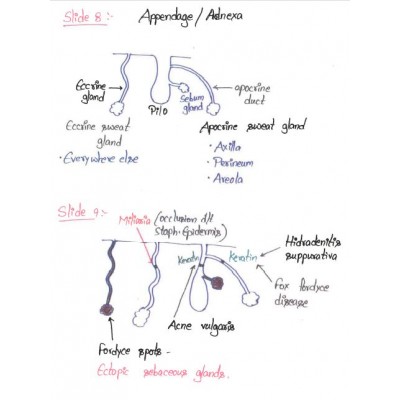 Slide 8 :-
Appendage / Adnexa
Eccrine gland
Pilo
Sebum gland
apocrine duct
Eccrine sweat gland
• Everywhere else
Apocrine sweat gland
• Axilla
• Perineum
• Areola
Slide 9 :-
Miliaria (occlusion d/t
Staph. Epidermis)
Keratin
Keratin
Hidradenitis
suppurativa
Fox fordyce
disease
Acne vulgaris
Fordyce spots -
Ectopic sebaceous glands.